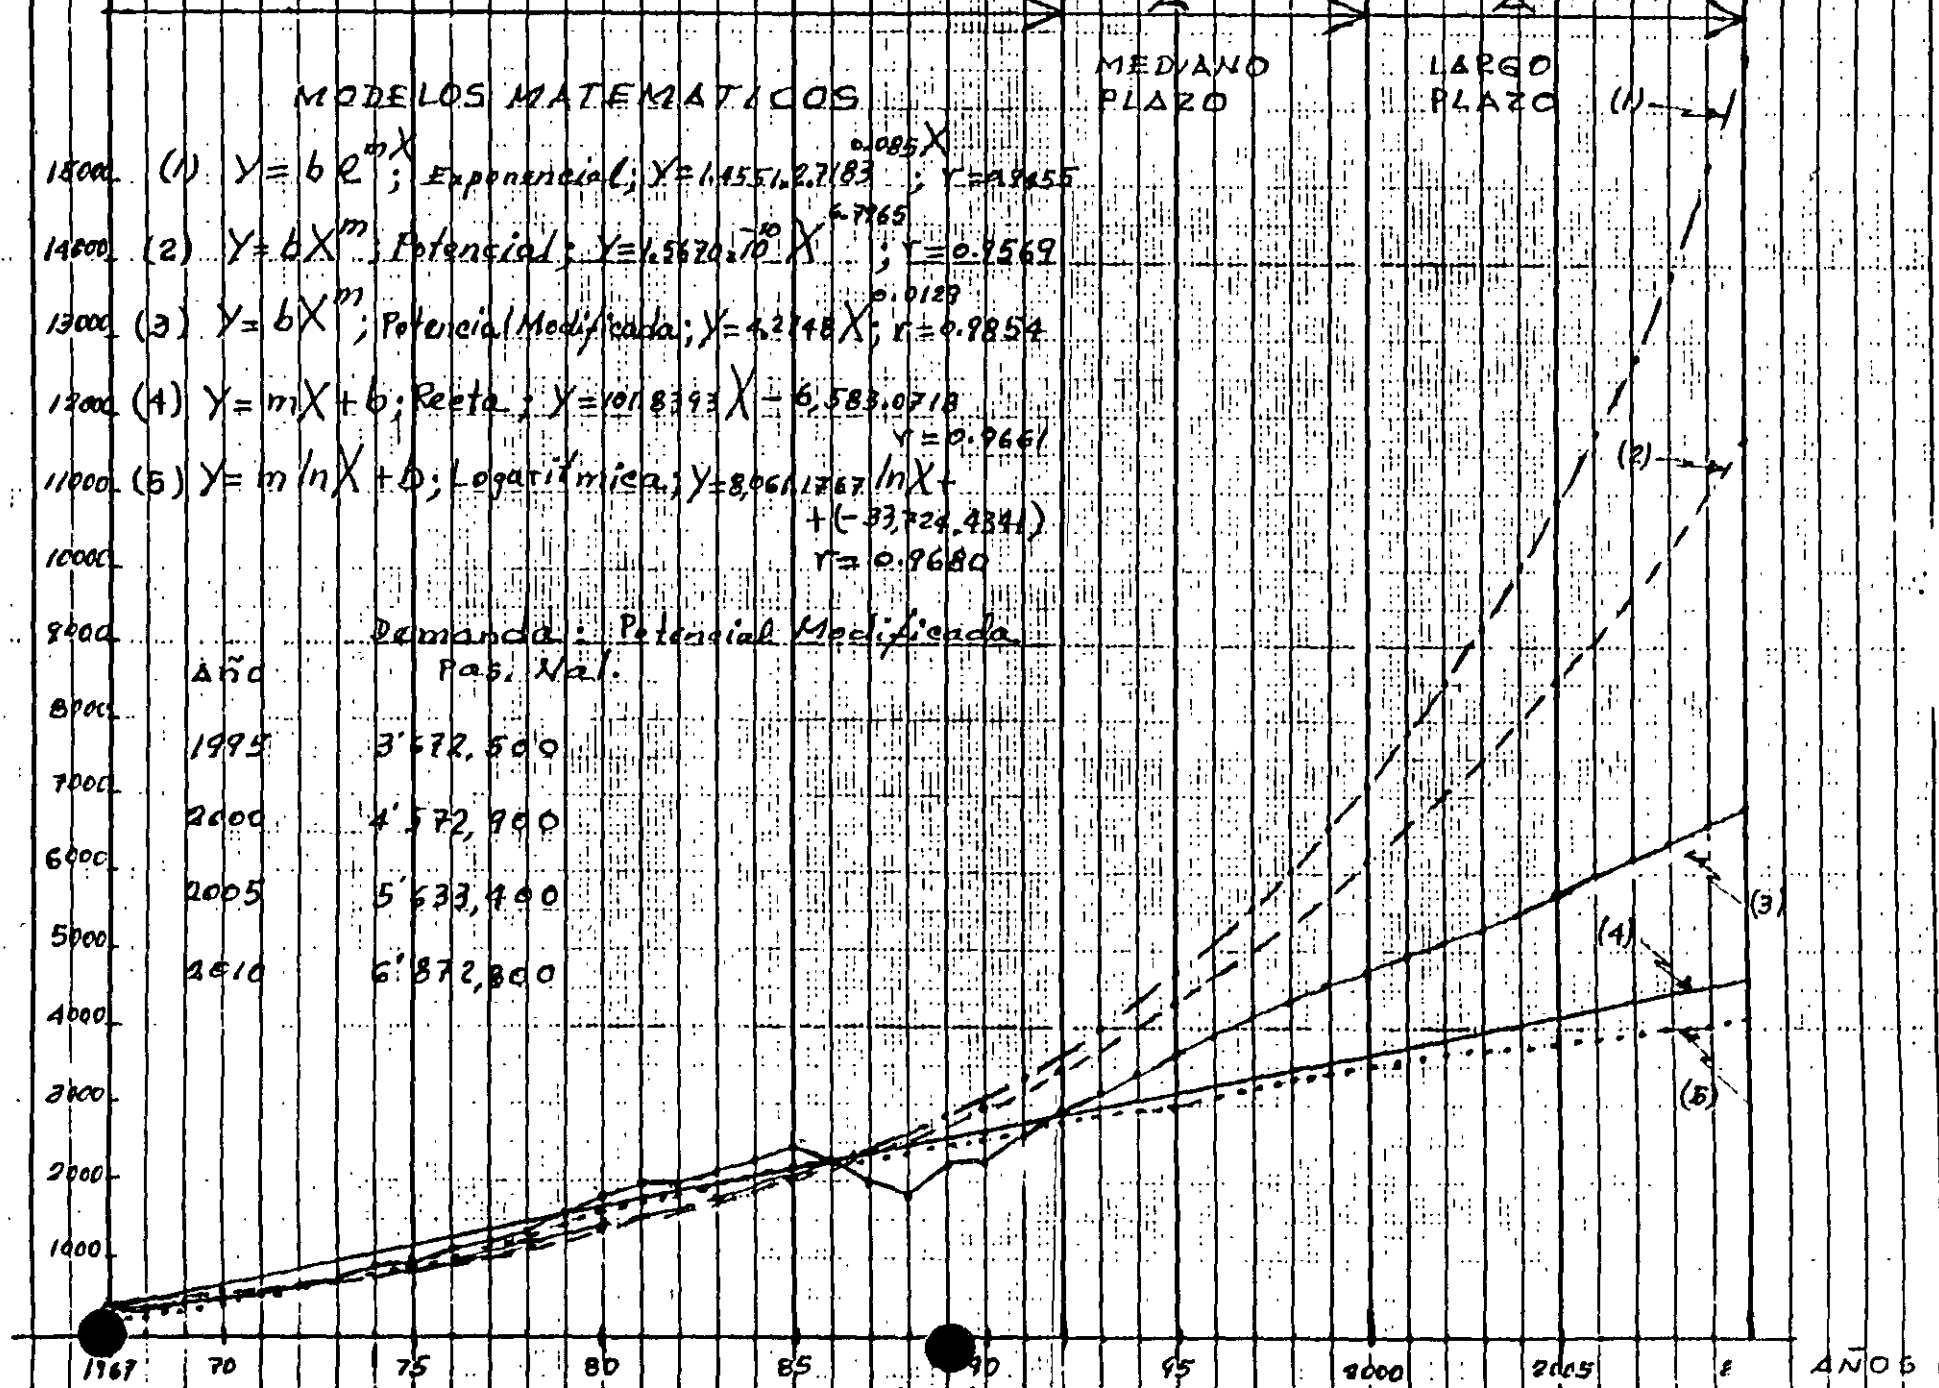 MEDIANO PLAZO
LARGO PLAZO
MODELOS MATEMATICOS
(1) Y = b e^mX; Exponencial; Y=1.4551.2.7183^0.085X; r=0.9455
(2) Y = bX^m; Potencial; Y=1.5670x10^-10 X^6.7965; r=0.9569
(3) Y = bX^m; Potencial Modificada; Y=4.2748X^0.0129; r=0.9854
(4) Y = mX + b; Recta; Y=101.8393X - 6,583.0713
r=0.9661
(5) Y = m ln X + b; Logaritmica; Y=8,061.1767 ln X +
+(-33,724.4341)
r=0.9680
Demanda: Potencial Modificada
Año Pas. Nal.
1995 3'672,500
2000 4'572,900
2005 5'633,400
2010 6'872,800
15000
14000
13000
12000
11000
10000
9000
8000
7000
6000
5000
4000
3000
2000
1000
(1)
(2)
(3)
(4)
(5)
1967 70 75 80 85 90 95 2000 2005 AÑOS